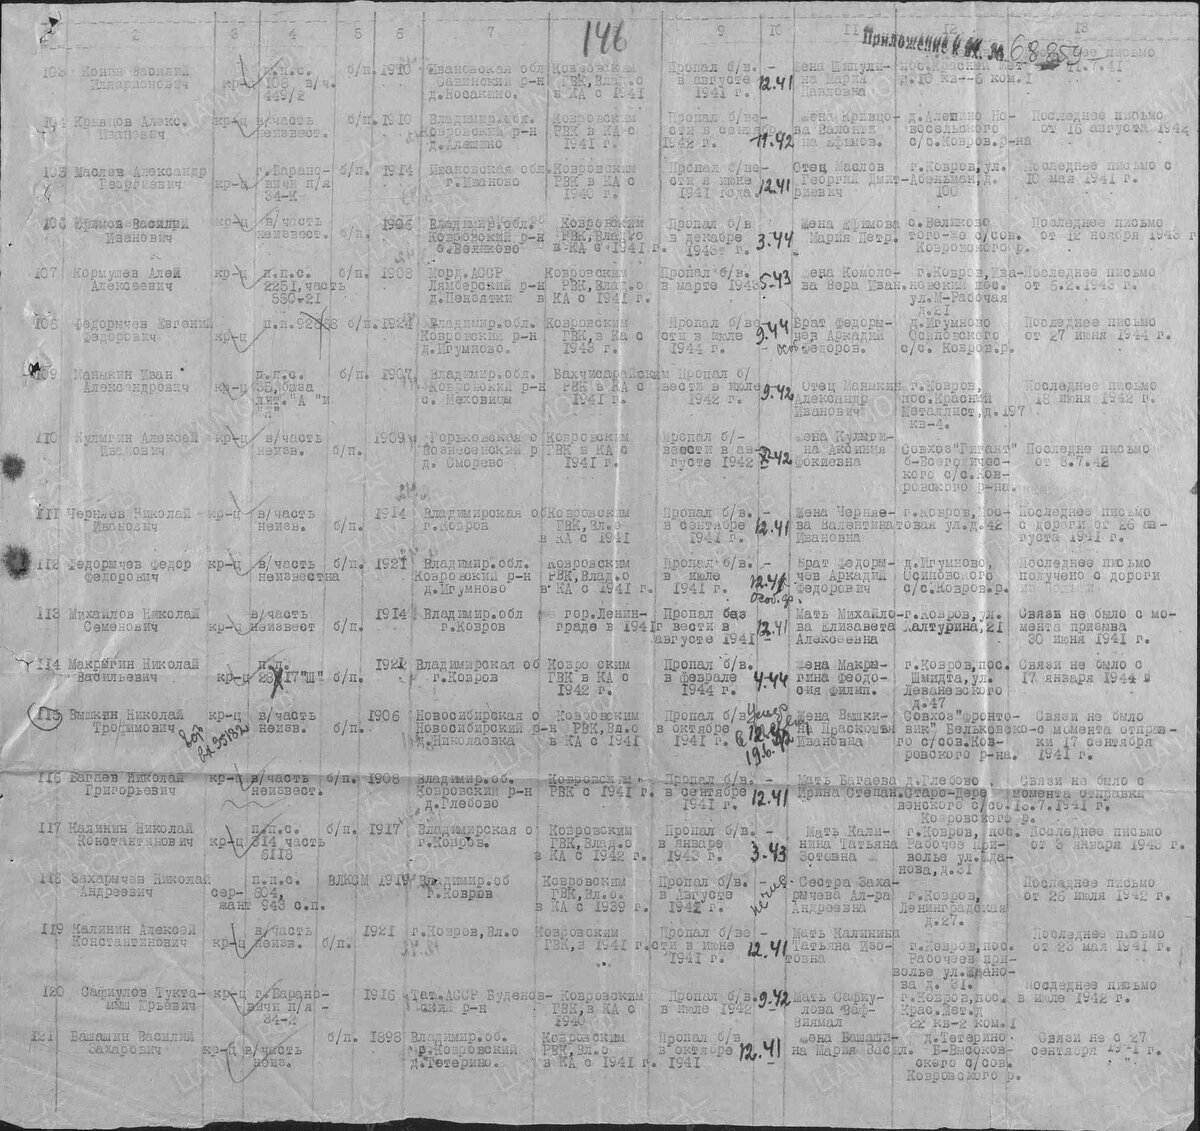 2 3 4 5 6 7 146 9 10 11 12 13
Приложение к вх. № 68354
Последнее письмо
103 Конан Василий п.п.с. б/п. 1910 Ивановская обл Ковровским Пропал б/в. - Жена
Илларионович кр-ц 108 в/ч. Савинский р-н ГВК, Влад.о в августе 12.41 на Мария д.10 кв--6 ком.1
449/2 д.Носакино. в КА с 1941 1941 г. Павловна
104 Кривцов Алекс. кр-ц в/часть б/п. 1910 Владимир.обл. Ковровским Пропал бве- Жена Кривцо- д.Алепино Но- Последнее письмо
Иванович неизвест. Ковровский р-н РВК в КА с сти в сентябр 11.42 ва Валенти восельского от 16 августа 1942
д.Алешино 1941 г. 1942 г. на Ефимов. с/с.Ковров.р-на
105 Маслов Александр г.Барано- б/п. 1914 Ивановская обл. Ковровским Пропал бве- Отец Маслов г.Ковров,ул. Последнее письмо с
Георгиевич кр-ц вичи п/я г.Иваново РВК в КА с сти в июне 12.41 Георгий Дмит- Абельман,д. 10 мая 1941 г.
34-К 1940 г. 1941 года. риевич 100
106 Ефимов Василий кр-ц в/часть 1906 Владимир.обл. Ковровским Пропал б/в Жена Ефимова с.Великово Последнее письмо
Иванович неизвест. б/п. Ковровский р-н РВК,Влад.о в декабре 3.44 Мария Петр. того-же с/сов. от 12 ноября 1943 г
с.Великово в-КА с 1941 г. 1943г г. Ковровского р.
107 Кормушев Алей кр-ц п.п.с. б/п. 1908 Морд.АССР Ковровским Пропал б/в. Жена Комоло- г.Ковров,Ива- Последнее письмо
Алексеевич 2251,часть Лямберский р-н РВК,Влад.о в марте 1943 5-43 ва Вера Иван. новский пос. от 6.2.1943 г.
550-21 д.Пензятки в КА с 1941 г. ул.И-Рабочая
д.21
108 Федорычев Евгений п.п.92838 б/п. 1924 Владимир.обл. Ковровским Пропал б/ве 9.44 Брат Федоры- д.Игумново Последнее письмо
Федорович кр-ц Ковровский р-н ГВК,в КА с сти в июле чев Аркадий Осиповского от 27 июня 1944 г.
д.Игумново. 1943 г. 1944 г. - Федоров. с/с. Ковров.р.
109 Манькин Иван п.п.с. б/п. 1907 Владимир.обл. Бахчисарайским Пропал б/
Александрович кр-ц 35,база Ковровский р-н РВК в КА с вести в июле 9.42 Отец Манькин г.Ковров, Последнее письмо
лит."А "и с. Меховицы 1941 г. 1942 г. Александр пос.Красный 18 июня 1942 г.
"Л" Иванович Металлист,д.197
кв-4.
110 Кулыгин Алексей кр-ц в/часть 1909 Горьковская о Ковровским Пропал б/- Жена Кулыги-
Иванович неизв. б/п. Вознесенский р ГВК в КА с вести в ав- на Аксиния Совхоз"Гигант" Последне письмо
д. Сморево 1941 г. густе 1942 -42 Фокиевна б-Всегодичес- от 8.7.42
кого с/с.Ков-
ровского р-на.
111 Черняев Николай кр-ц в/часть 1914 Владимирская об Ковровским Пропал б/в. Жена Черняе- г.Ковров, Последнее письмо
Иванович неизв. б/п. г.Ковров ГВК,Вл.о в сентябре 12.41 ва Валентина товая ул.д.42 с дороги от 26 ав-
в КА с 1941 1941 г. Ивановна густа 1941 г.
112 Федорычев Федор кр-ц в/часть б/п. 1921 Владимир.обл. Ковровским Пропал б/в. Брат Федоры- д.Игумново, Последнее письмо
Федорович неизвестна Ковровский р-н РВК,Влад.о в июле 12.41 чев Аркадий Осиповского получено с дороги
д.Игумново в КА с 1941 г. 1941 г. Федорович с/с.Ковров.р.
113 Михайлов Николай в/часть 1914 Владимир.обл гор.Ленин- Пропал без Мать Михайло- г.Ковров,ул. Связи не было с мо-
Семенович кр-ц неизвест б/п. г.Ковров граде в 1941г вести в 12.41 ва Елизавета Халтурина,21 мента призыва
августе 1941 Алексеевна 30 июня 1941 г.
114 Макрыгин Николай п.п. 1921 Владимирская об Ковровским Пропал б/в. Жена Макры- г.Ковров,пос. Связи не было с
Васильевич кр-ц 17"Ш" б/п. г.Ковров ГВК в КА с в феврале 4.44 гина Феодо- Шмидта,ул. 17 января 1944 г
1942 г. 1944 г. сия Филип. Леваневского
д.47
115 Вышкин Николай кр-ц в/часть 1906 Новосибирская о Ковровским Пропал б/в Жена Вышки- Совхоз"фронто- Связи не было
Трофимович неизв. б/п. Новосибирский р-н РВК,Вл.о в октябре на Прасковья вик" Бельковско- с момента отправ-
д.Николаевка в КА с 1941 1941 г. Ивановна го с/сов.Ков- ки 17 сентября
ровского р-на. 1941 г.
116 Багаев Николай кр-ц в/часть б/п. 1908 Владимир.об. Ковровским Пропал б/в. - Мать Багаева д.Глебово Связи не было с
Григорьевич неизвест. Ковровский р-н РВК с 1941 г. в сентябре 12.41 Ирина Степан. Старо-Дере момента отправки
д.Глебово 1941 г. венского с/со. 13.7.1941 г.
Ковровского р.
117 Калинин Николай п.п.с. б/п. 1917 Владимирская о Ковровским Пропал б/в. - Мать Кали- г.Ковров, пос. Последнее письмо
Константинович кр-ц 314 часть г.Ковров. ГВК,Влад.о в январе 3.43 нина Татьяна Рабочее При- от 3 января 1943 г.
6118 в КА с 1942 г. 1943 г. Зотовна волье ул.Жда-
нова,д.31
118 Захарычев Николай п.п.с. ВЛКСМ 1919 Владимир.об Ковровским Пропал б/в. - Сестра Заха- Последнее письмо
Андреевич сер- 804, г.Ковров ГВК,Вл.о. в Августе рычева Ал-ра г.Ковров, от 26 июля 1942 г.
жант 943 с.п. в КА с 1939 г. 1942 г. Андреевна Ленинградская
д.27.
119 Калинин Алексей в/часть 1921 г.Ковров,Вл.о Ковровским Пропал б/ве - Мать Калинина Последнее письмо
Константинович кр-ц неизв. б/п. ГВК,в 1941 г. сти в июне 12.41 Татьяна Изо- г.Ковров,пос. от 23 мая 1941 г.
1941 г. товна Рабочеев при-
волье ул.Ждано-
ва д. 31.
120 Сафиулов Тукта- кр-ц г.Барано- 1916 Тат.АССР Буденов- Ковровским Пропал б/в. 9.42 Мать Сафиу- г.Ковров,пос. последнее письмо
мыш Крьевич вичи п/я - ский р-н ГВК,в КА с в июле 1942 лова Крас.Мет.д в июле 1942 г.
34-2 1940 22 кв-2 ком.1
121 Башашин Василий б/п. 1898 Владимир.об. Ковровским Пропал б/в Жена Башаши- д.Тетерино Связи не с 27
Захарович кр-ц в/часть р.Ковровский РВК,Вл.о в октябре 12.41 на Мария Васил. Б-Высоков- сентября 1941 г.
неиз. д.Тетерино. в КА с 1941 г. 1941 ского с/сов.
Ковровского р.